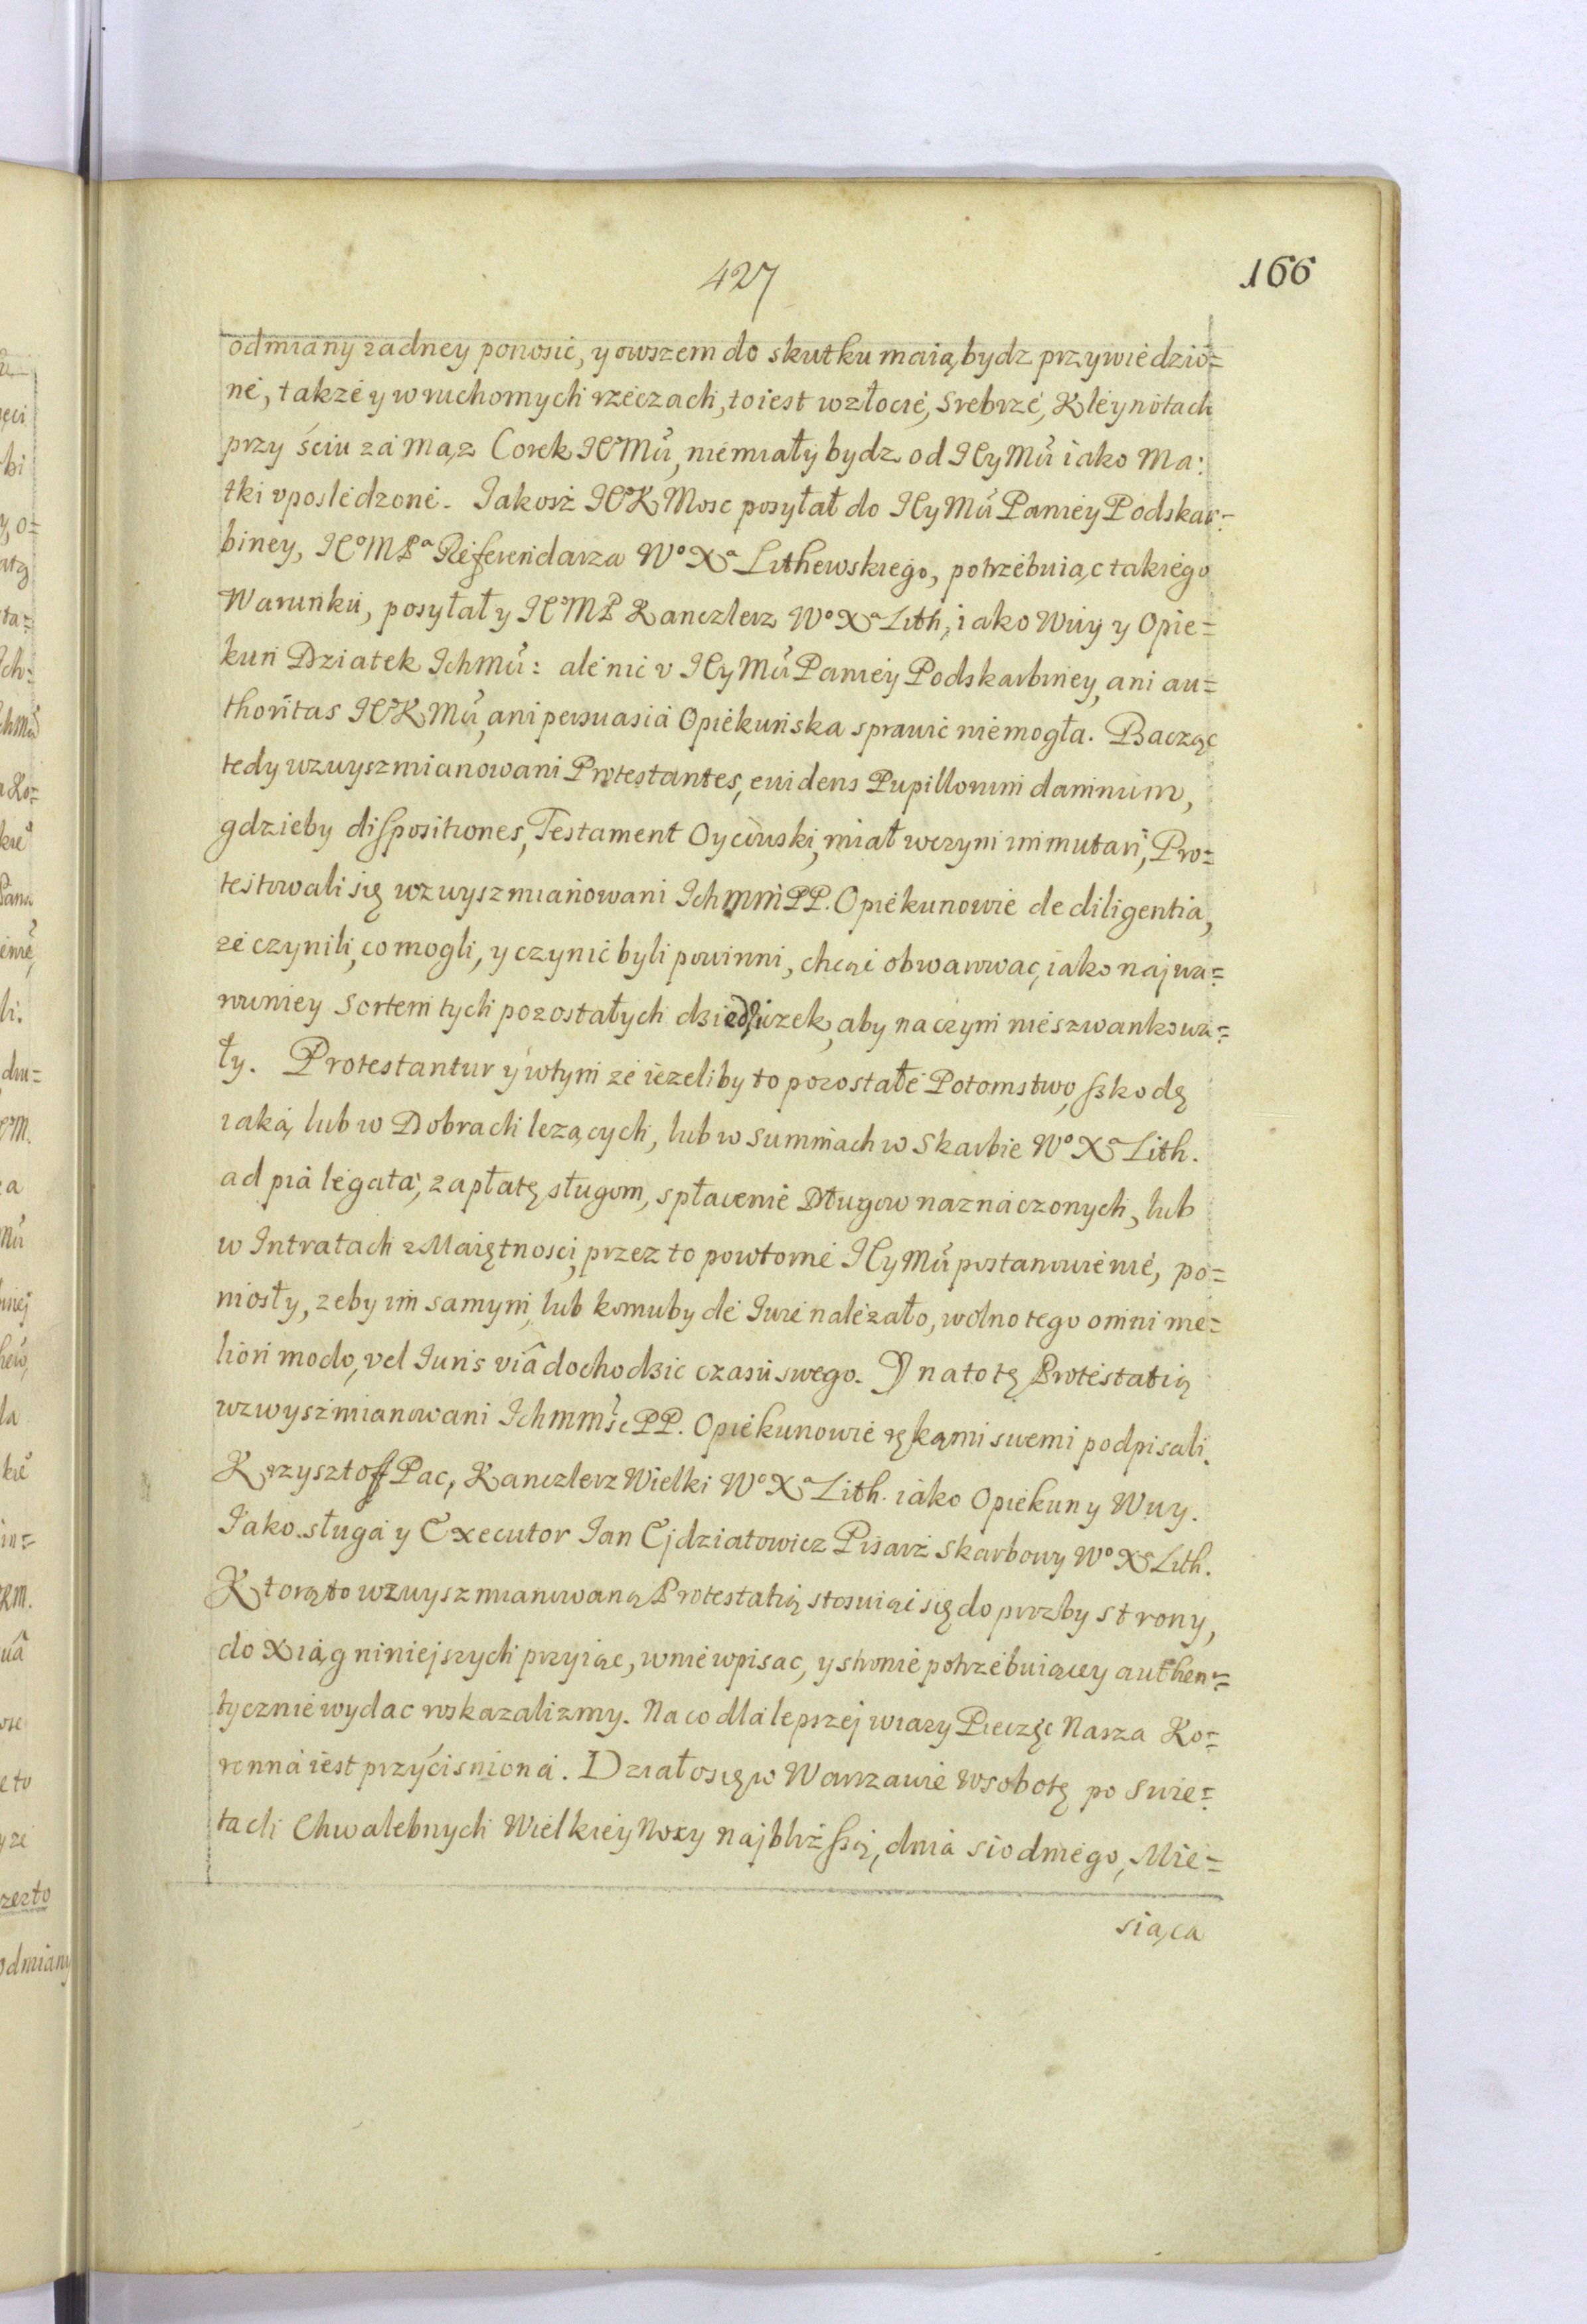 427
166
odmiany zadney ponosić, y owszem do skutku maią bydz przywiedzio=
ne, takze y w ruchomych rzeczach, to iest w złocie, Srebrze, Kleynotach
przy ściu za mąz Corek IEoMći, nie miały bydz od IEyMći iako Ma:
tki vposledzone. Jakosz IEoK Mosc posyłał do IEyMći Paniey Podskar=
biney, IEoMPa Referendarza Wo Xa Lithewskiego, potrzebuiąc takiego
Warunku, posyłał y IEoMP Kanczlerz Wo Xa Lith, iako Wuy y Opie=
kun Dziatek Ichmći: ale nic v IEyMći Paniey Podskarbiney, ani au=
thoritas IEoKMći, ani persuasia Opiekunska sprawic nie mogła. Bacząc
tedy wzwyszmianowani Protestantes, euidens Pupillorum damnum,
gdzieby dispositiones, Testament Oycowski, miał w czym immutari, Pro=
testowali się wzwyszmianowani IchmmPP. Opiekunowie de diligentia,
ze czynili, co mogli, y czynic byli powinni, chcąc obwarowac, iako najwa=
rowniey Sortem tych pozostałych dziedziczek, aby na czym nie szwankowa=
ły. Protestantur y w tym ze iezeliby to pozostałe Potomstwo, szkodę
iaką, lub w Dobrach lezących, lub w Summach w Skarbie Wo Xa Lith.
ad pia legata, zapłatę sługom, spłacenie Długow naznaczonych, lub
w Intratach z Maiętnosci, przez to powtorne IEyMći postanowienie, po=
niosły, zeby im samym, lub komuby de Iure nalezało, wolno tego omni me=
liori modo, vel Iuris viâ dochodzic czasu swego. Y na to tę Protestatią
wzwyszmianowani Ichmmśc PP. Opiekunowie rękami swemi podpisali.
Krzysztoff Pac, Kanczlerz Wielki Wo Xa Lith. iako Opiekun y Wuy.
Jako sługa y Executor Jan Ejdziatowicz Pisarz Skarbowy Wo Xa Lith.
Ktorą to wzwyszmianowaną Protestatią stosuiąc się do prozby strony,
do Xiąg niniejszych przyiąc, w nie wpisac, y stronie potrzebuiącey authen=
tycznie wydac roskazalizmy. Na co dla lepszej wiary Pieczęc Nasza Ko=
ronna iest przycisniona. Działo się w Warszawie w sobotę po Swie=
tach Chwalebnych Wielkiey Nocy najbliższą, dnia siodmego, Mie=
siąca